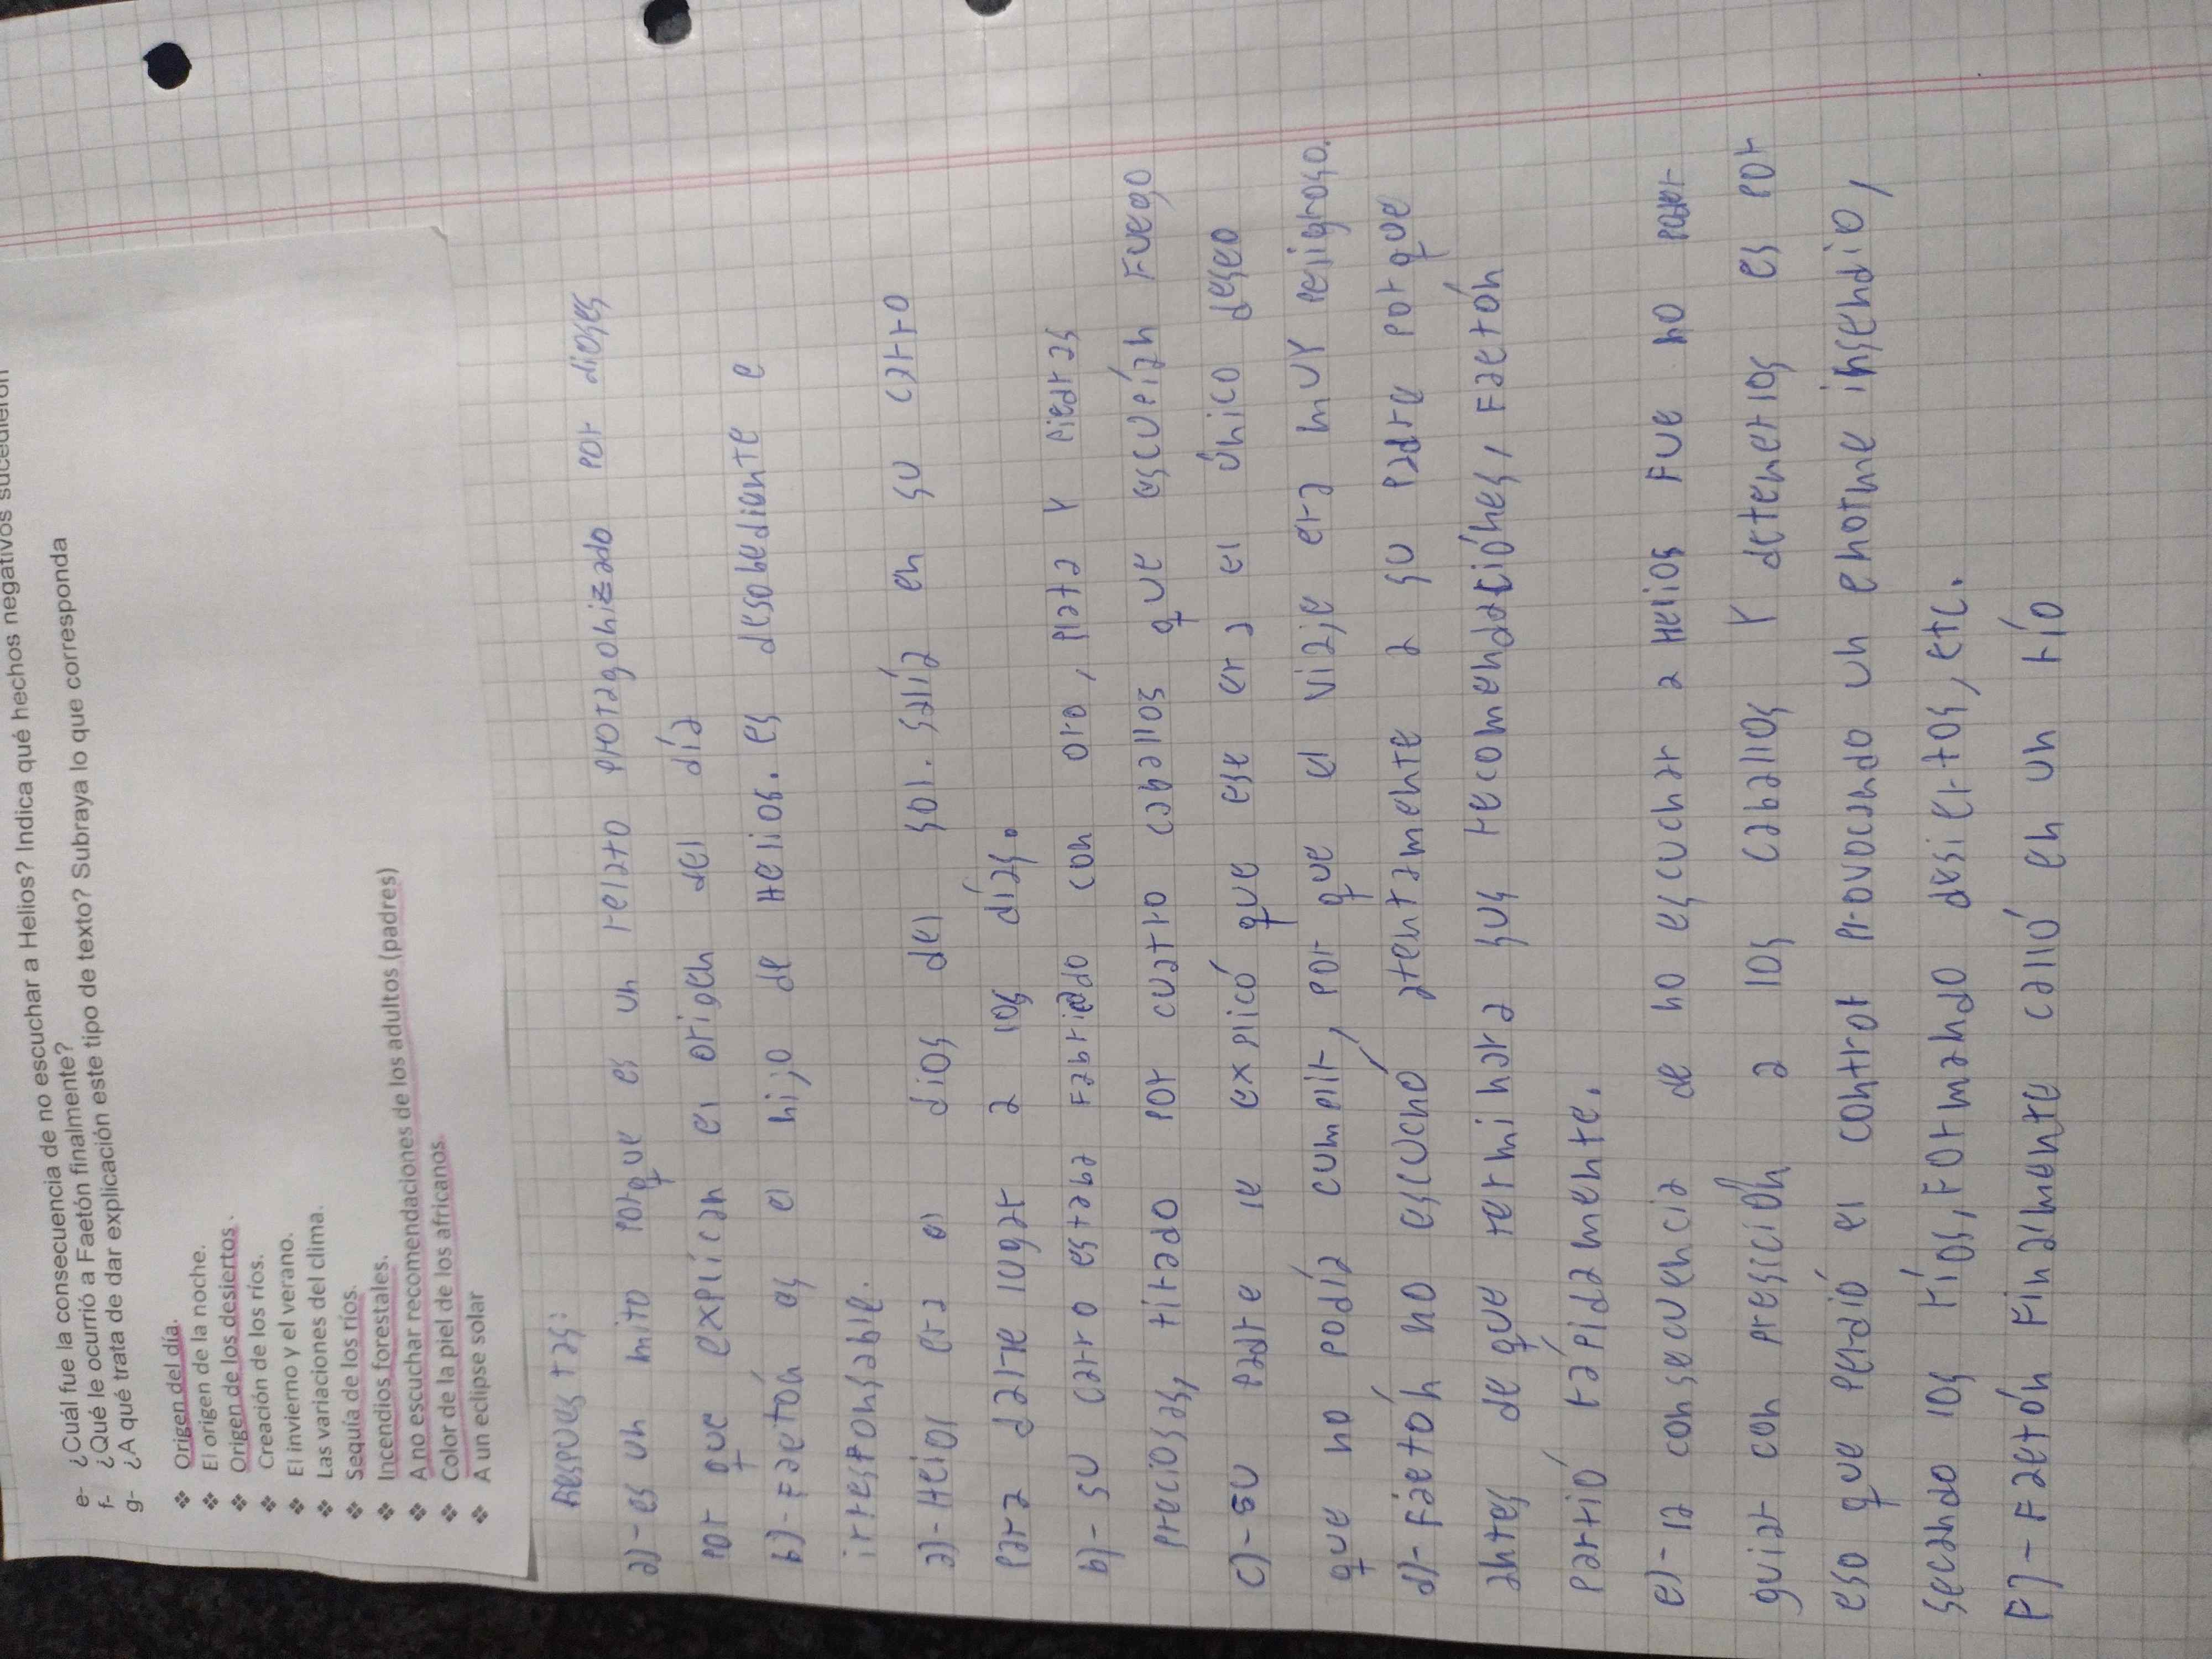 e- ¿Cuál fue la consecuencia de no escuchar a Helios? Indica qué hechos negativos sucedieron
f- ¿Qué le ocurrió a Faetón finalmente?
g- ¿A qué trata de dar explicación este tipo de texto? Subraya lo que corresponda
❖ Origen del día.
❖ El origen de la noche.
❖ Origen de los desiertos.
❖ Creación de los ríos.
❖ El invierno y el verano.
❖ Las variaciones del clima.
❖ Sequía de los ríos.
❖ Incendios forestales.
❖ A no escuchar recomendaciones de los adultos (padres)
❖ Color de la piel de los africanos
❖ A un eclipse solar
Respuestas:
a)-es un mito porque es un relato protagonizado por dioses
por que explican el origen del día
b)-Faetón es el hijo de Helios. es desobediante e
irresponsable.
a)-Heios era el dios del sol. salía en su carro
para darle lugar a los días.
b)-su carro estaba fabricado con oro, plata y piedras
preciosas, tirado por cuatro caballos que escupían fuego
c)-su padre le explicó que ese era el único deseo
que no podía cumplir, por que el viaje era muy peligroso.
d)-Faetón no escuchó atentamente a su padre porque
antes de que terminara sus recomendaciónes, Faetón
partió rápidamente.
e)-la consecuencia de no escuchar a Helios fue no poder
guiar con presición a los caballos y detenerlos es por
eso que perdió el control provocando un enorme insendio,
secando los ríos, formando desiertos, etc.
F)-Faetón finalmente calló en un río